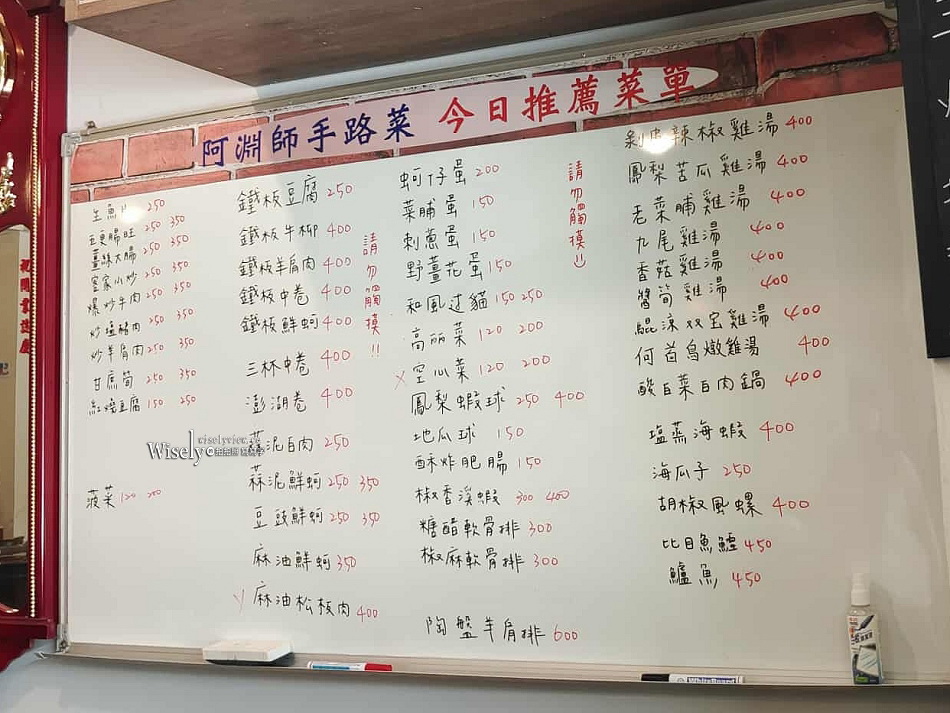 阿淵師手路菜 今日推薦菜單
生魚片 250
五更腸旺 250 350
薑絲大腸 250 350
客家小炒 250 350
爆炒牛肉 250 350
炒鹽酥肉 250 350
炒羊肩肉 250 350
甘蔗筍 250 350
紅燒豆腐 150 250
菠菜 120 200
鐵板豆腐 250
鐵板牛柳 400
鐵板羊肩肉 400
鐵板中卷 400
鐵板鮮蚵 400
三杯中卷 400
澎湖卷 400
蒜泥白肉 250
蒜泥鮮蚵 250 350
豆豉鮮蚵 250 350
麻油鮮蚵 350
麻油松板肉 400
請勿觸摸!!
蚵仔蛋 200
菜脯蛋 150
刺蔥蛋 150
野薑花蛋 150
和風过貓 150 250
高丽菜 120 200
空心菜 120 200
鳳梨蝦球 250 400
地瓜球 150
酥炸肥腸 150
椒香溪蝦 300 400
糖醋軟骨排 300
椒麻軟骨排 300
陶盤羊肩排 600
請勿觸摸
剝皮辣椒雞湯 400
鳳梨苦瓜雞湯 400
老菜脯雞湯 400
九尾雞湯 400
香菇雞湯 400
醬筍雞湯 400
鯤涼双宝雞湯 400
何首烏燉雞湯 400
酸白菜白肉鍋 400
塩蒸海蝦 400
海瓜子 250
胡椒風螺 400
比目魚鱸 450
鱸魚 450
wiselyview.cc
Wisely
WhiteBoard